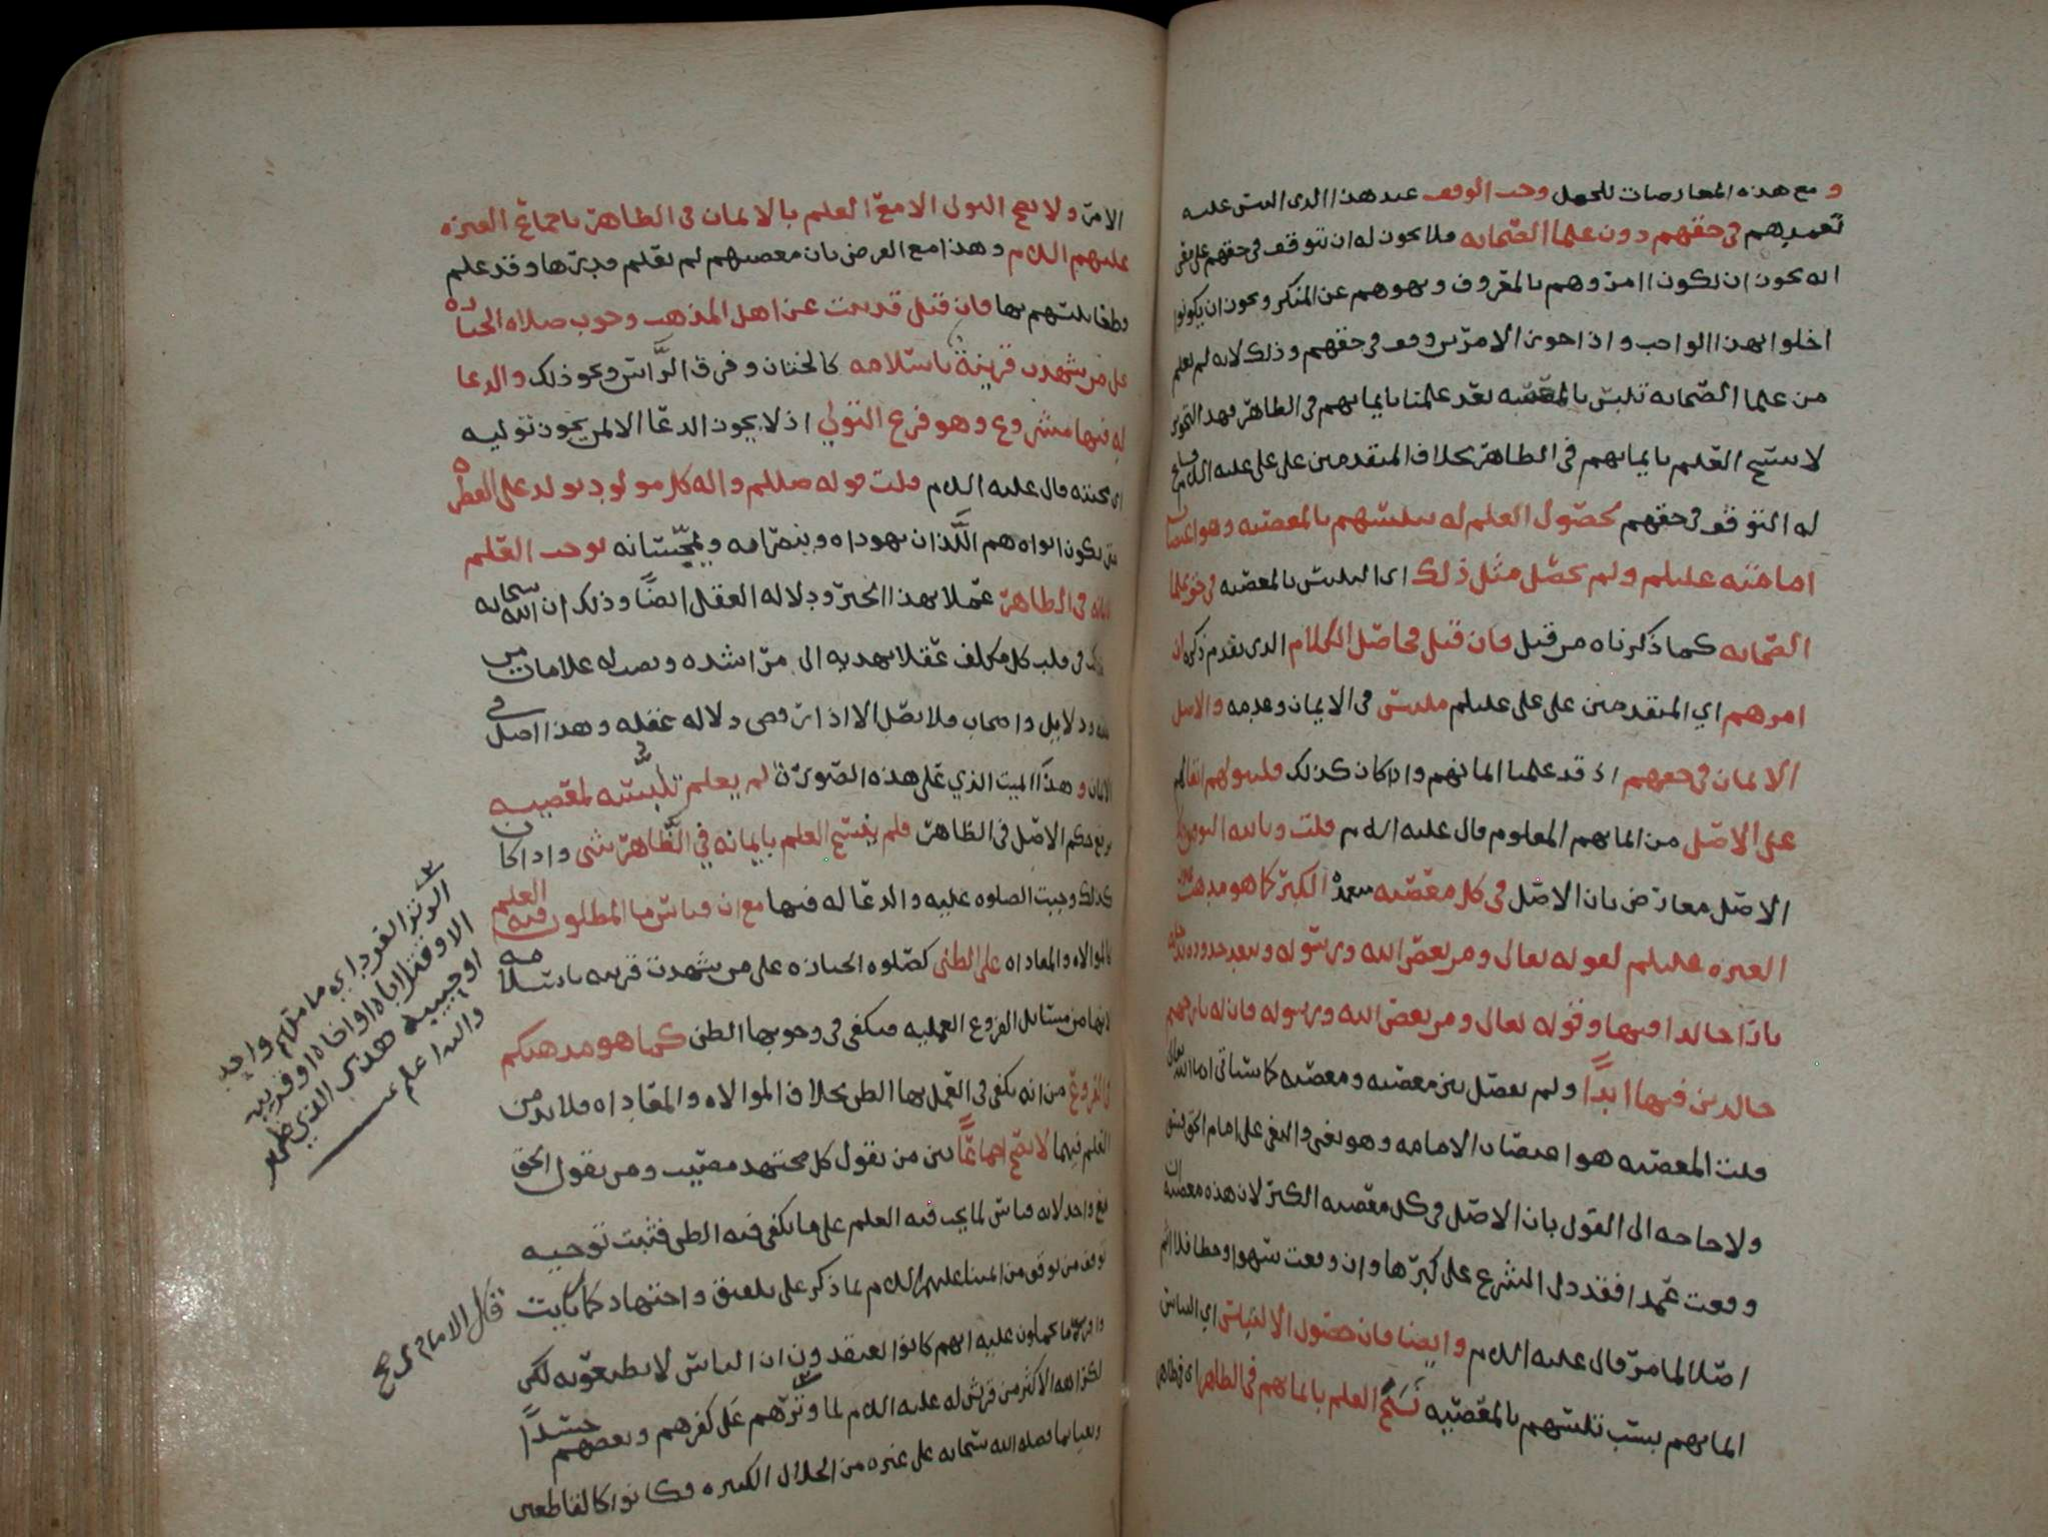 و مع هذه المعارضات للحمل وجب الوقف عند هذا الذي التبس عليه
تعمدهم في حقهم دون علما الصحابه فلا يجوز له ان يتوقف في حقهم على
انه يجوز ان يكون امروهم بالمعروف ونهوهم عن المنكر ويجوز ان يكونوا
اخلوا بهذا الواجب واذا جوز الامرين وقف في حقهم وذلك لانه لم يعلم
من علما الصحابه تلبس بالمعصيه بعد علمنا بايمانهم في الظاهر فهذا التجويز
لا ينسخ العلم بايمانهم في الظاهر بخلاف المتقدمين على علي عليه السلام
له التوقف في حقهم لحصول العلم له بتلبسهم بالمعصيه وهو اغتصاب
امامته عليلم ولم يحصل مثل ذلك اي التلبس بالمعصيه في حق علما
الصحابه كما ذكرناه من قبل فان قيل فحاصل الكلام الذي تقدم ذكره ان
امرهم اي المتقدمين على علي عليلم ملتبس في الايمان وعدمه والاصل
الايمان في حقهم اذ قد علمنا ايمانهم واذا كان كذلك فليتولهم
على الاصل من ايمانهم المعلوم قال عليه السلام قلت وبالله التوفيق
الاصل معارض بان الاصل في كل معصيه الكبر كما هو مذهب
العتره عليلم لقوله تعالى ومن يعص الله ورسوله ويتعد حدوده يدخله
نارا خالدا فيها وقوله تعالى ومن يعص الله ورسوله فان له نار جهنم
خالدين فيها ابدا ولم يفصل بين معصيه ومعصيه كما سياتي ان شا الله تعالى
قلت المعصيه هو اغتصاب الامامه وهو بغي والبغي على امام الحق فسق
ولا حاجه الى القول بان الاصل في كل معصيه الكبر لان هذه معصيه ان
وقعت عمدا فقد دل الشرع على كبرها وان وقعت سهوا او خطا فلا اثم
اصلا لما مر قال عليه السلام وايضا فان حصول الالتباس اي التباس
ايمانهم بسبب تلبسهم بالمعصيه نسخ العلم بايمانهم في الظاهر اي في ظاهر
الامر ولا يصح التولي الا مع العلم بالايمان في الظاهر باجماع العتره
عليهم السلام وهذا مع الفرض بان معصيتهم لم يعلم كبرها وقد علم
بها فان قيل قد ثبت عن اهل المذهب وجوب صلاه الجنازه
على من شهدت قرينة باسلامه كالختان وفرق الراس ونحو ذلك والدعا
له فيها مشروع وهو فرع التولي اذ لا يجوز الدعا الا لمن يجوز توليه
اي محبته قال عليه السلام قلت قوله صللم واله كل مولود يولد على الفطره
حتى يكون ابواه هم اللذان يهودانه وينصرانه ويمجسانه يوجب العلم
بايمانه في الظاهر عملا بهذا الخبر ودلاله العقل ايضا وذلك ان الله سبحانه
ركب في قلب كل مكلف عقلا يهديه الى مراشده ونصب له علامات من
ودلايل واضحات فلا يضل الا اذا ترفض دلاله عقله وهذا اصل في
الايمان وهذا الميت الذي على هذه الصورة لم يعلم تلبسه لمعصيه
يرفع حكم الاصل في الظاهر فلم ينسخ العلم بايمانه في الظاهر شي واذا كان
كذلك وجبت الصلوه عليه والدعا له فيها مع ان قياس ما المطلوب فيه العلم
كالموالاه والمعاداه على الظني كصلوه الجنازه على من شهدت قرينه باسلامه
لانها من مسايل الفروع العمليه فيكفي في وجوبها الظن كما هو مذهبكم
في الفروع من انه يكفي في العمل بها الظن بخلاف الموالاه والمعاداه فلا بد من
العلم فيهما لا يصح اجماعا بين من يقول كل مجتهد مصيب ومن يقول الحق
مع واحد لانه قياس لما يجب فيه العلم على ما يكفي فيه الظن فثبت توجيه
توقف من توقف من ايمتنا عليهم السلام لما ذكر على تلفيق واجتهاد كما رايت
ما يحملون عليه انهم كانوا يعتقدون ان الناس لا يطيعونه لكن
لكراهه الاكثر من قريش له عليه السلام لما وترهم على كفرهم وبعضهم حسدا
وبغيا بما فضله الله سبحانه على غيره من الخلال الكثيره فكانوا كالقاطعين
الوتر الفرد اي ما منهم واحد
الا وقتل اباه او اخاه او قريبه
او حبيبه هذا الذي ظهر
والله اعلم
قال الامام ي ح